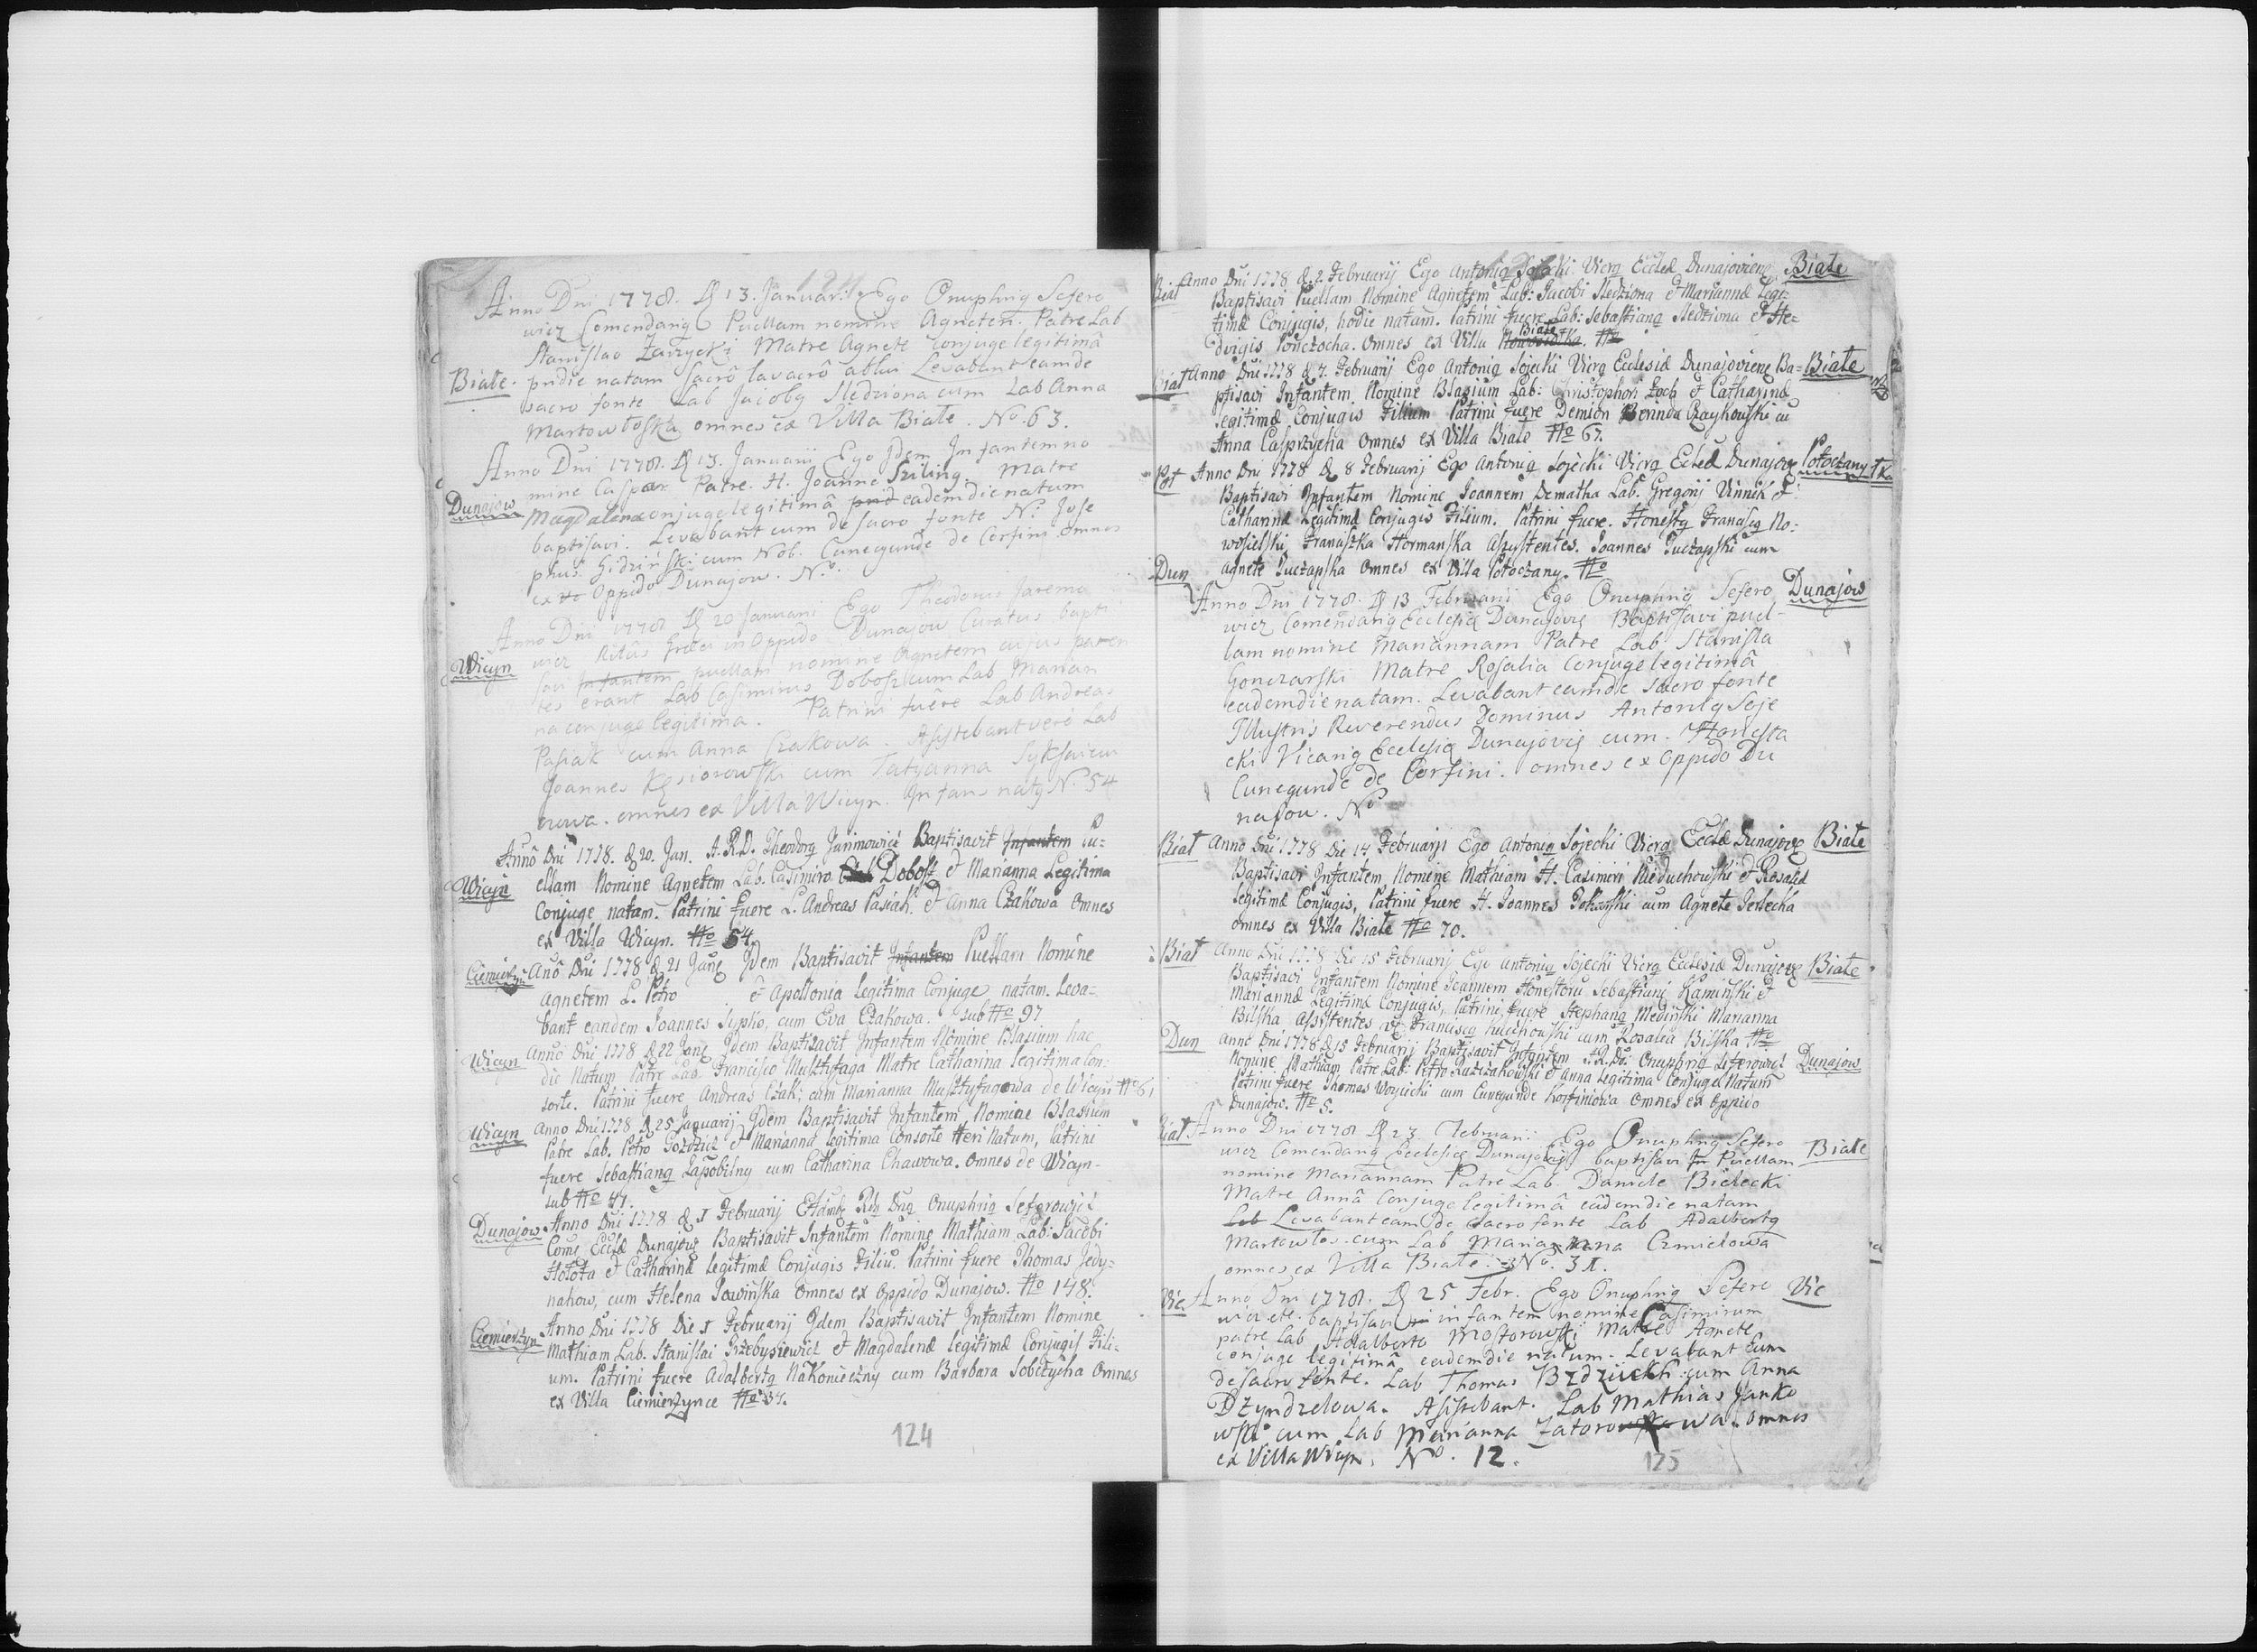 Anno Dni 1778. D 13. Januarii Ego Onuphrig Sefero
wicz Comendarig Puellam nomine Agneten. Patre Lab
Stanislao Zarzycki Matre Agnete Conjuge legitimâ
Białe. pridie natam Sacrô lavacrô ablui Levabant eam de
sacro fonte Lab Jacobg Sledziona cum Lab Anna
Martowłoska omnes ex Villa Białe. No 63.
Anno Dni 1778. D 13. Januarii Ego Idem Infantem no
mine Caspar Patre. H. Joanne Sziling. Matre
Dunajow Magdalena conjuge legitimâ prid eadem die natum
baptisavi. Levabant eum de sacro fonte N: Jose
phus Gidziński cum Nob. Cunegunde de Corfini omnes
ex Oppido Dunajow. No.
Anno Dni 1778 D 20 Januarii Ego Theodorus Jaremo
Wicyn wicz Ritûs Greci in Oppido Dunajow Curatus bapti
savi Infantem puellam nomine Agnetem cujus paren
tes erant Lab Casimirus Dobosz cum Lab Marian
na conjuge legitima. Patrini fuêre Lab Andreas
Pasiak cum Anna Czakowa. Assistebant verò Lab
Joannes Kęsiorowski cum Tatyanna
omnes ex Villa Wicyn. Infans natg No 54
Annô Dni 1778. D 20. Jan. A.R.D. Theodorg Jarimowicz Baptisavit Infantem Pu-
Wicyn ellam Nomine Agnetem Lab. Casimiro Dobosz et Marianna Legitima
Conjuge natam. Patrini fuere L. Andreas Pasiak. et Anna Czakowa Omnes
ex Villa Wicyn. No 54.
Ciemierzyn Anô Dni 1778 D 21 Idem Baptisavit Infantem Puellam Nomine
Agnetem L. Petro et Apollonia Legitima Conjuge natam. Leva-
bant eandem Joannes Sypko, cum Eva Czakowa. sub No 97
Wicyn Anno Dni 1778 D 22 Idem Baptisavit Infantem Nomine Blasium hac
die Natum Patre Lab. Francisco Musztyfaga Matre Catharina legitima Con-
sorte. Patrini fuere Andreas Czak; cum Marianna Musztyfagowa de Wicyn No 61
Wicyn Anno Dni 1778 D 25 Januarij Idem Baptisavit Infantem Nomine Blasium
Patre Lab. Petro Gozdzik et Marianna legitima Consorte Heri Natum, Patrini
fuere Sebastiang Zasobilny cum Catharina Chawowa. Omnes de Wicyn.
sub No 47.
Dunajow Anno Dni 1778 D 1 Februarij Onuphrig Seferowicz
Come Eccle Dunajowie Baptisavit Infantem Nomine Mathiam Lab: Jacobi
Hołota et Catharinæ legitimæ Conjugis Filiu. Patrini fuere Thomas Jedy-
nakow, cum Helena Sowińska omnes ex Oppido Dunajow. No 148.
Ciemierzyn Anno Dni 1778 Die 1 Februarij Idem Baptisavit Infantem Nomine
Mathiam Lab. Stanislai Grzebysiewicz et Magdalenæ legitimæ Conjugis Fili-
um. Patrini fuere Adalbertg Nakonieczny cum Barbara Sobczycha Omnes
ex Villa Ciemierzynce No 37.
124
Biał Anno Dni 1778 D 2 Februarij Ego Antonig Sojecki Vicrg Eccleæ Dunajoviens Białe
Baptisavi Puellam Nomine Agnetem Lab: Jacobi Sledziona et Mariannæ Legi-
timæ Conjugis, hodie natam. Patrini fuere Lab: Sebastiang Sledziona et He-
dvigis Ponczocha. Omnes ex Villa Białe No
Biał Anno Dni 1778 D 7. Februarij Ego Antonig Sojecki Vicrg Ecclesiæ Dunajoviens Ba- Białe
ptisavi Infantem Nomine Blasium Lab: Christophori Zoch et Catharinæ
legitimæ Conjugis Filium Patrini fuere Demion Czaykowski cu
Anna Casprzycha Omnes ex Villa Białe No 67.
Pot Anno Dni 1778 D 8 Februarij Ego Antonig Sojecki Vicrg Eccleæ Dunajow Potoczany
Baptisavi Infantem Nomine Joannem Dematha Lab. Gregorij Vinnik et
Catharinæ Legitimæ Conjugis Filium. Patrini fuere. Honestg Franciscg No-
wosielski, Franciszka Hormanska Assistentes. Joannes Tuczapski cum
Agnete Tuczapska Omnes ex Villa Potoczany. No
Dun
Anno Dni 1778. D 13 Februarii Ego Onuphrig Sefero Dunajow
wicz Comendarig Ecclesiæ Dunajovis Baptisavi puel-
lam nomine Mariannam Patre Lab Stanisla
Gonczarski Matre Rosalia Conjuge legitimâ
eadem die natam. Levabant eam de sacro fonte
Illustris Reverendus Dominus Antonig Soje
cki Vicarig Ecclesiæ Dunajovis cum. Honesta
Cunegunde de Corfini. omnes ex Oppido Du
najow. No
Biał Anno Dni 1778 Die 14 Februarij Ego Antonig Sojecki Vicrg Eccleæ Dunajow Białe
Baptisavi Infantem Nomine Mathiam H. Casimiri Nieduchowski et Rosaliæ
legitimæ Conjugis, Patrini fuere H. Joannes Tokarski cum Agnete
omnes ex Villa Białe No 70.
Biał Anno Dni 1778 Die 15 Februarij Ego Antonig Sojecki Vicrg Ecclesiæ Dunajow Białe
Baptisavi Infantem Nomine Joannem Honestoru Sebastiani Kaminski et
Mariannæ Legitimæ Conjugis, Patrini fuere Stephang Medinski Marianna
Bilska Assistentes Franciscg cum Rosalia Bilska No
Dun Anno Dni 1778 D 15 Februarij Baptisavit Infantem Onuphrig Seferowicz Dunajow
Nomine Mathiam Patre Lab: Petro et Anna Legitima Conjuge Natum
Patrini fuere Thomas Woycicki cum Cunegunde Korfiniowa Omnes ex Oppido
Dunajow. No 5.
Biał Anno Dni 1778 D 23 Februarii Ego Onuphrig Sefero
wicz Comendarig Ecclesiæ Dunajovis baptisavi In Puellam Białe
nomine Mariannam Patre Lab. Daniele Bielecki
Matre Annâ Conjuge legitimâ eâdem die natam
Lab Levabant eam de sacro fonte Lab Adalbertg
Martowłos cum Lab Marianna Cmielowa
omnes ex Villa Białe. No. 31.
Vic Anno Dni 1778. D 25 Febr. Ego Onuphrig Sefero Vic
wicz etc. baptisavi infantem nomine Casimirum
patre Lab Adalberto Mostorowski Matre Agnete
conjuge legitimâ eadem die natum. Levabant Eum
de sacro fonte. Lab Thomas cum Anna
Dżyndzelowa. Asistebant. Lab Mathias Janko
wski cum Lab Marianna Zatorowa. omnes
ex Villa Wicyn. No. 12.
125